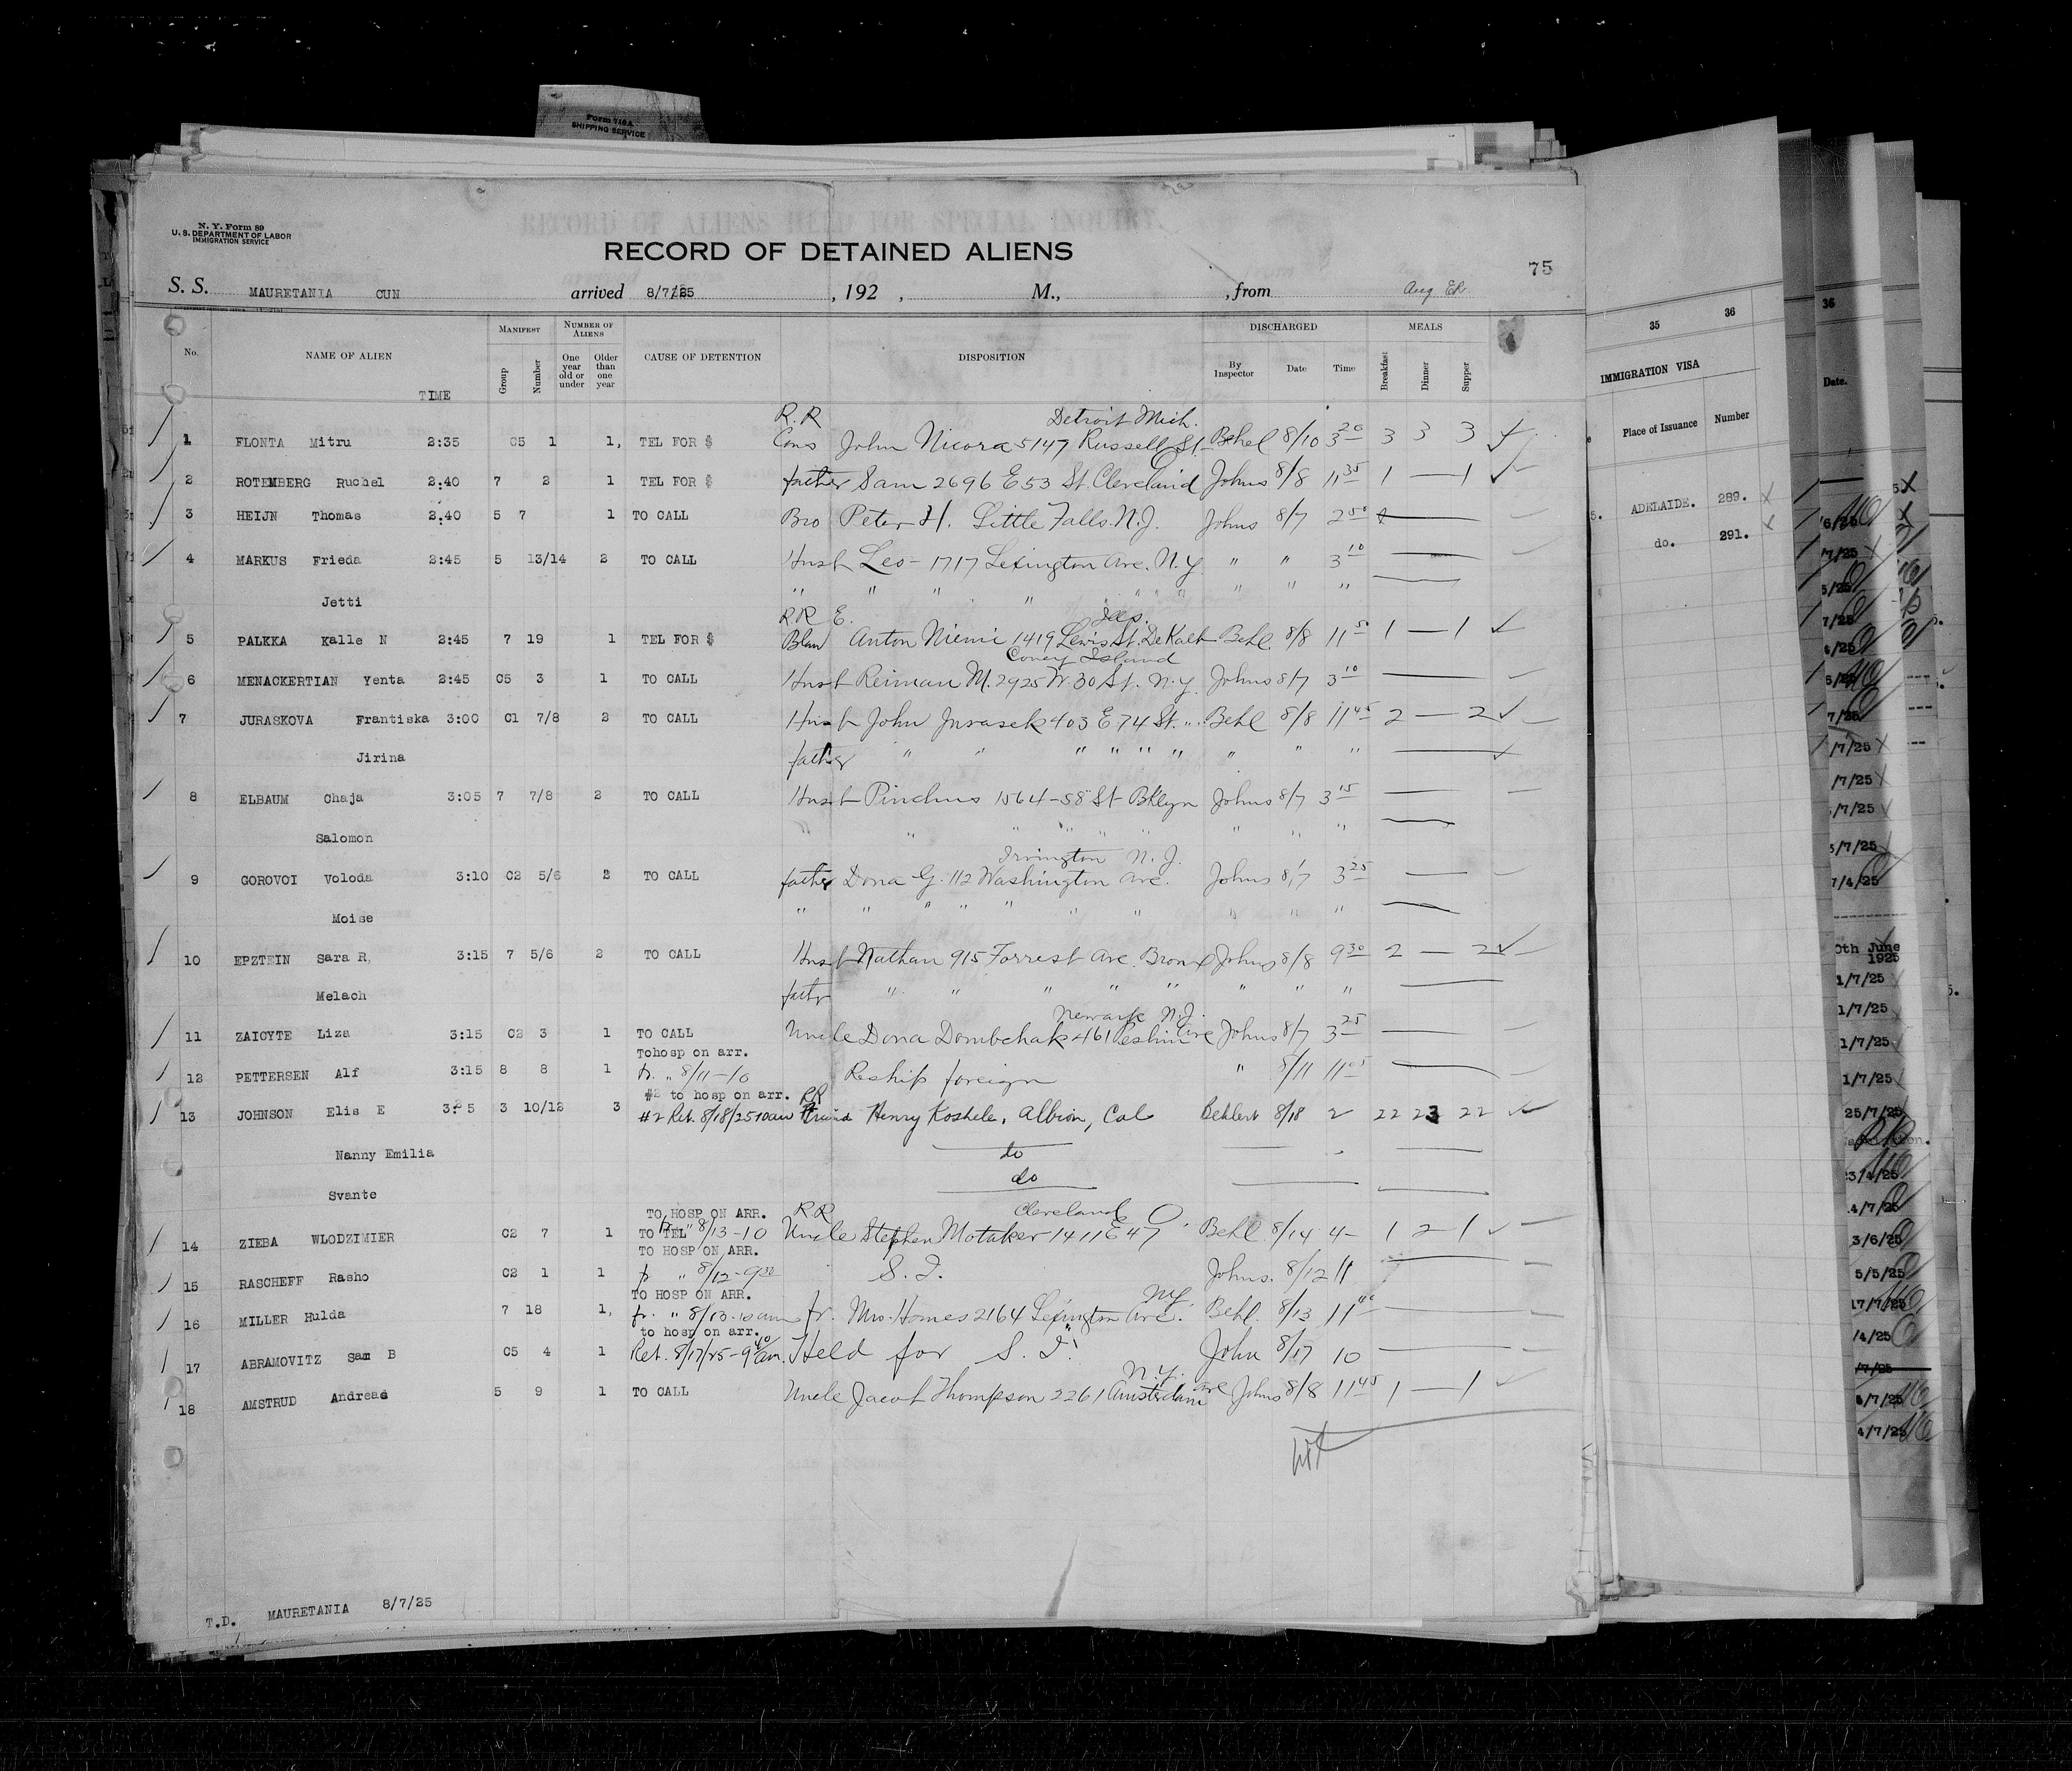 Form 718A
SHIPPING SERVICE
N. Y. Form 89
U. S. DEPARTMENT OF LABOR
IMMIGRATION SERVICE
RECORD OF ALIENS HELD FOR SPECIAL INQUIRY
RECORD OF DETAINED ALIENS
75
S. S. MAURETANIA CUN arrived 8/7/25 , 192 , M., , from
No. NAME OF ALIEN MANIFEST NUMBER OF ALIENS CAUSE OF DETENTION DISPOSITION DISCHARGED MEALS
Group Number One year old or under Older than one year By Inspector Date Time Breakfast Dinner Supper
TIME
R. R Detroit Mich.
1 FLONTA Mitru 2:35 C5 1 1, TEL FOR $ Cous John Nicora 5147 Russell St Behl 8/10 3 20 3 3 3
2 ROTEMBERG Ruchel 2:40 7 2 1 TEL FOR $ father Sam 2696 E 53 St. Cleveland Johns 8/8 11 35 1 — 1
3 HEIJN Thomas 2.40 5 7 1 TO CALL Bro Peter H. Little Falls. N.J. Johns 8/7 2 50 —
4 MARKUS Frieda 2:45 5 13/14 2 TO CALL Husb Leo - 1717 Lexington Ave. N.Y. " " 3 10 —
Jetti " " " " " " " " " " —
R R
5 PALKKA Kalle N 2:45 7 19 1 TEL FOR $ Anton Niemi 1419 Lewis St. DeKalb Behl. 8/8 11 50 1 — 1
Coney Island
6 MENACKERTIAN Yenta 2:45 C5 3 1 TO CALL Husb Reiman M. 2925 W. 30 St. N.Y. Johns 8/7 3 10 —
7 JURASKOVA Frantiska 3:00 C1 7/8 2 TO CALL Husb John Jurasek 403 E 74 St. " Behl 8/8 11 45 2 — 2
Jirina father " " " " " " " " " —
8 ELBAUM Chaja 3:05 7 7/8 2 TO CALL Husb Pinchus 1564 - 58 St Bklyn Johns 8/7 3 15 —
Salomon " " " " " " " " " —
Irvington N.J.
9 GOROVOI Voloda 3:10 C2 5/6 2 TO CALL father Dona G. 112 Washington Ave. Johns 8/7 3 25 —
Moise " " " " " " " " " " —
10 EPZTEIN Sara R, 3:15 7 5/6 2 TO CALL Husb Nathan 915 Forrest Ave. Bronx Johns 8/8 9 30 2 — 2
Melach " " " " " " " " —
Newark N.J.
11 ZAICYTE Liza 3:15 C2 3 1 TO CALL Uncle Dona Dombchak 461 Ave Johns 8/7 3 25 —
Tohosp on arr.
12 PETTERSEN Alf 3:15 8 8 1 fr. " 8/11-10 Reship foreign " 8/11 11 05 —
#2 to hosp on arr. RR
13 JOHNSON Elis E 3 10/12 3 #2 Ret. 8/18/25 10am friend Henry Koskele, Albion, Cal Behlert 8/18 2 22 23 22
Nanny Emilia do —
Svante do —
TO HOSP ON ARR. RR Cleveland O
14 ZIEBA WLODZIMIER C2 7 1 TO TEL fr " 8/13-10 Uncle Stephen Motaker 1411 E 47 Behl. 8/14 4- 1 2 1
TO HOSP ON ARR.
15 RASCHEFF Rasho C2 1 1 fr " 8/12-9 30 S. I. Johns. 8/12 11 —
TO HOSP ON ARR. N.Y.
16 MILLER Hulda 7 18 1, fr. " 8/13-10 am fr. Mrs. Homes 2164 Lexington Ave. Behl. 8/13 11 40 —
to hosp on arr.
17 ABRAMOVITZ Sam B C5 4 1 Ret. 8/17/25-9 40 am. Held for S. I. John 8/17 10 —
N.Y.
18 AMSTRUD Andreas 5 9 1 TO CALL Uncle Jacob Thompson 2261 Amsterdam ave Johns 8/8 11 45 1 — 1
T.D. MAURETANIA 8/7/25
35 36
IMMIGRATION VISA
Place of Issuance Number
ADELAIDE. 289.
do. 291.
36
Date.
0th June
1925
1/7/25
1/7/25
1/7/25
1/7/25
25/7/25
23/4/25
4/7/25
3/6/25
5/5/25
17/7/25
/4/25
/7/25
6/7/25
4/7/25